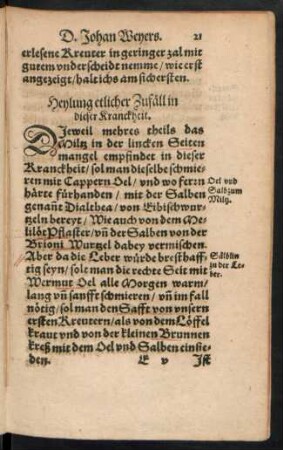 D. Johan Weyers. 21
erlesene Kreuter in geringer zal mit
gutem vnderscheidt nemme / wie erst
angezeigt / halt ichs am sichersten.
Heylung etlicher Zufäll in
dieser Kranckheit.
DJeweil mehres theils das
Miltz in der lincken Seiten
mangel empfindet in dieser
Kranckheit / sol man dieselbe schmie-
ren mit Cappern Oel / vnd wo fern
härte fürhanden / mit der Salben
genañt Dialthea / von Eibischwur-
tzeln bereyt / Wie auch von dem Me-
lilöt Pflaster / vñ der Salben von der
Brioni Wurtzel dabey vermischen.
Aber da die Leber würde bresthaff-
tig seyn / sole man die rechte Seit mit
Wermut Oel alle Morgen warm /
lang vñ sanfft schmieren / vñ im fall
nötig / sol man den Safft von vnsern
ersten Kreutern / als von dem Löffel
kraut vnd von der kleinen Brunnen
kreß mit dem Oel vnd Salben einsie-
den. E v Jst
Oel vnd
Salb zum
Miltz.
Sälblin
zu der Le-
ber.